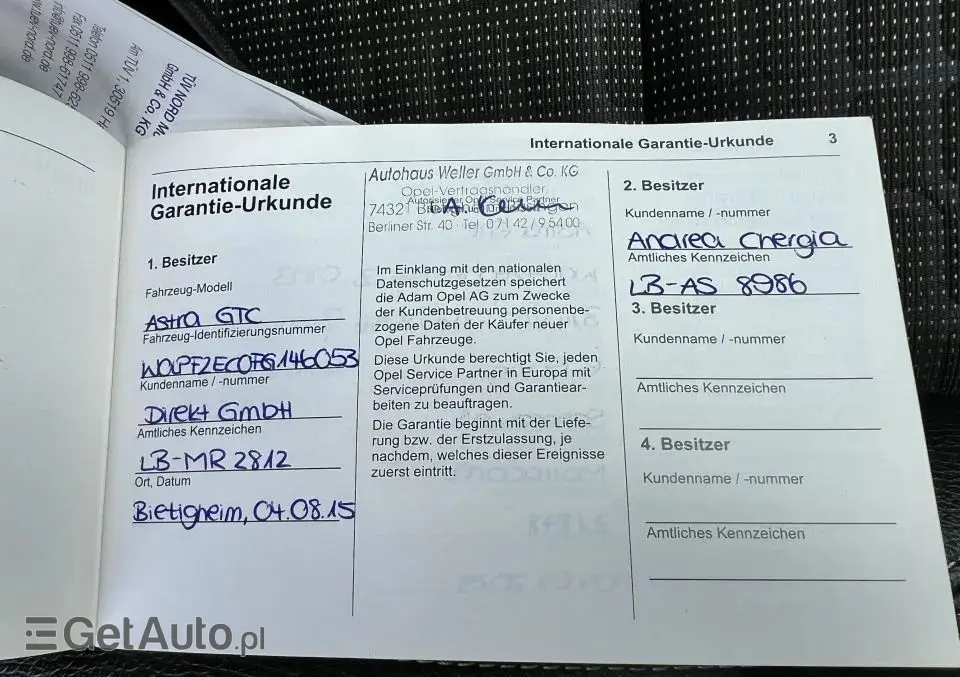 TÜV NORD
GmbH & Co. KG
Am TÜV 1, 30519
Internationale Garantie-Urkunde 3
Internationale
Garantie-Urkunde
1. Besitzer
Fahrzeug-Modell
Astra GTC
Fahrzeug-Identifizierungsnummer
W0LPF2EC0FG146053
Kundenname / -nummer
Direkt GmbH
Amtliches Kennzeichen
LB-MR 2812
Ort, Datum
Bietigheim, 04.08.15
Autohaus Weller GmbH & Co. KG
Opel-Vertragshändler
Autorisierter Opel Service Partner
74321
Berliner Str. 40 · Tel. 0 71 42 / 9 54 00
Im Einklang mit den nationalen
Datenschutzgesetzen speichert
die Adam Opel AG zum Zwecke
der Kundenbetreuung personenbe-
zogene Daten der Käufer neuer
Opel Fahrzeuge.
Diese Urkunde berechtigt Sie, jeden
Opel Service Partner in Europa mit
Serviceprüfungen und Garantiear-
beiten zu beauftragen.
Die Garantie beginnt mit der Liefe-
rung bzw. der Erstzulassung, je
nachdem, welches dieser Ereignisse
zuerst eintritt.
2. Besitzer
Kundenname / -nummer
Andrea Chergia
Amtliches Kennzeichen
LB-AS 8986
3. Besitzer
Kundenname / -nummer
Amtliches Kennzeichen
4. Besitzer
Kundenname / -nummer
Amtliches Kennzeichen
GetAuto.pl